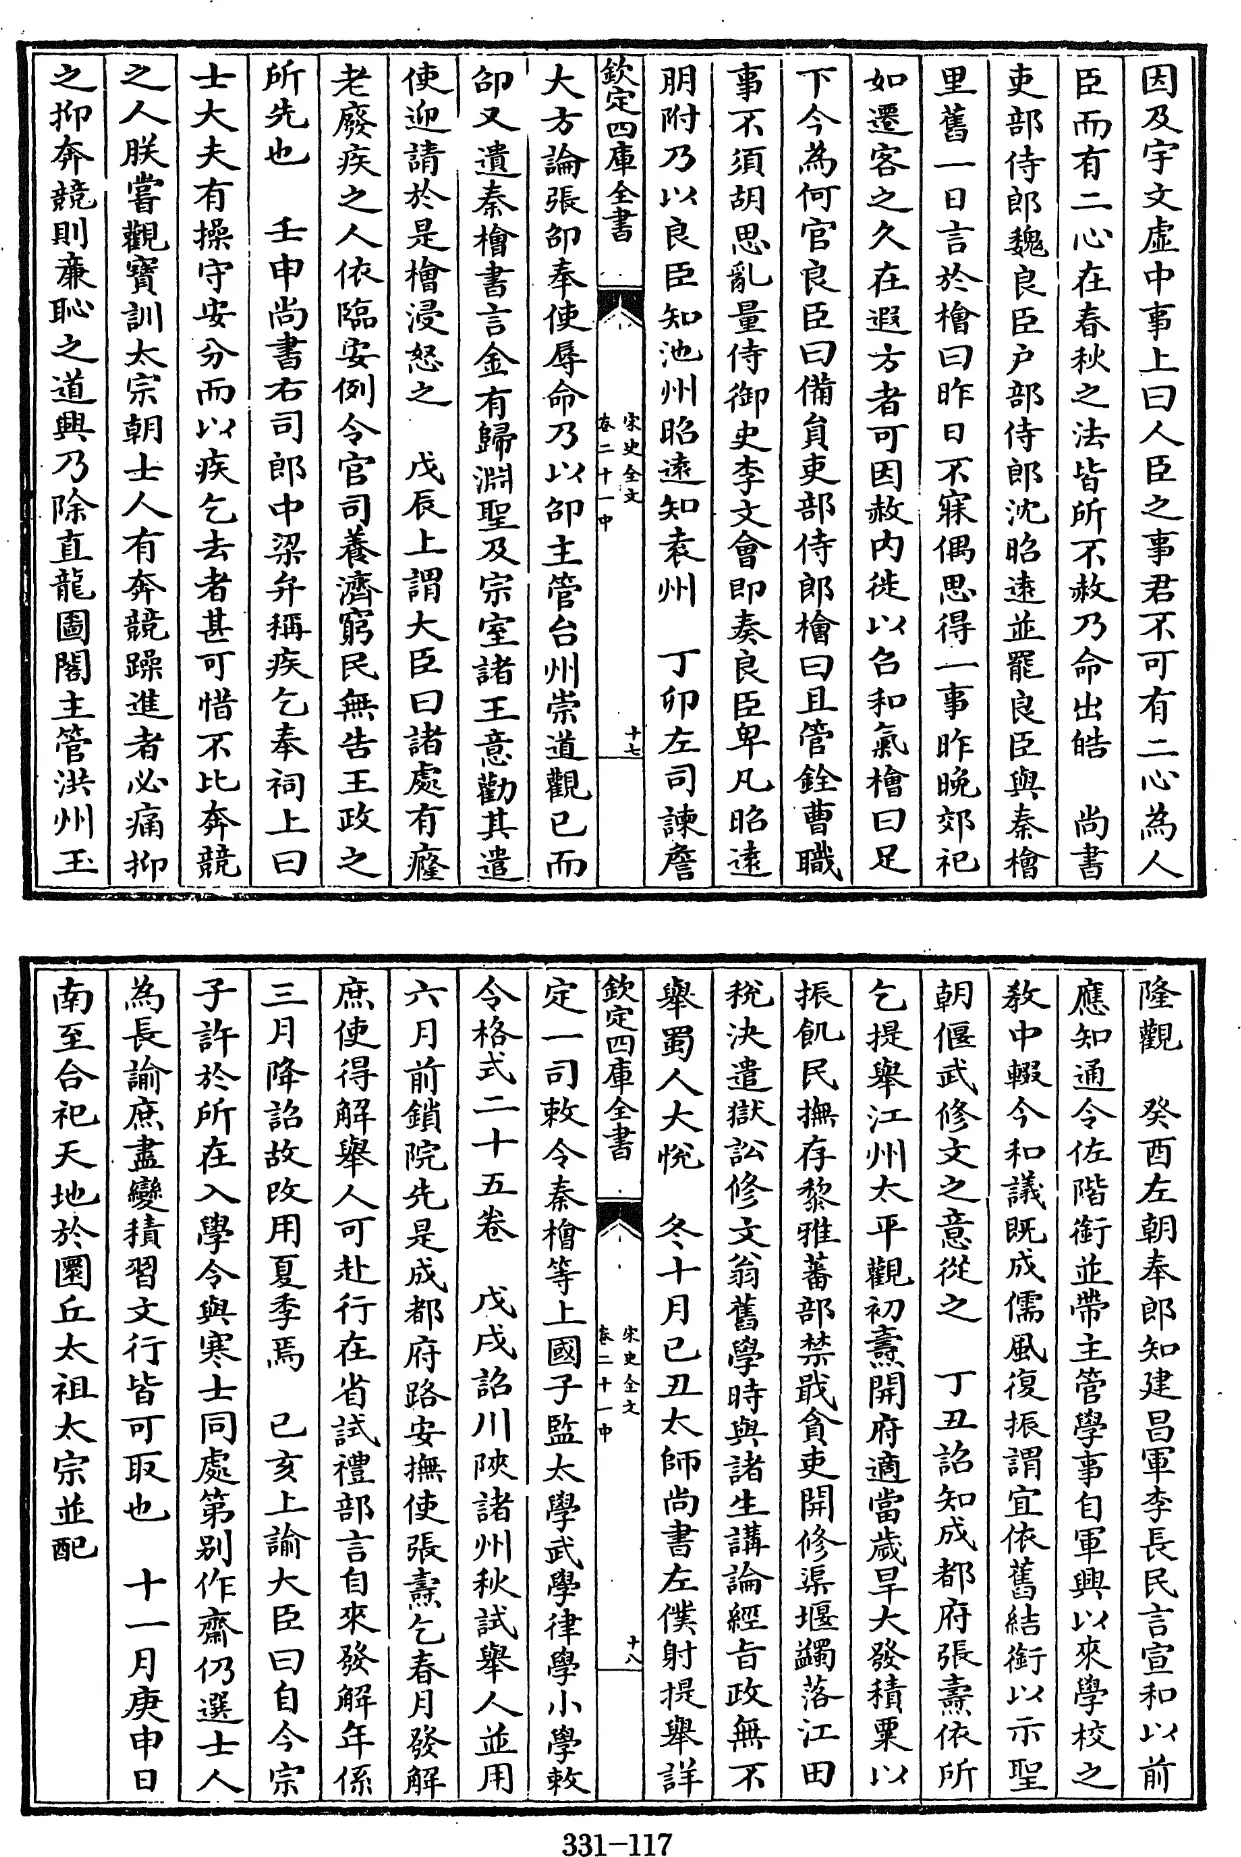 因及宇文虚中事上曰人臣之事君不可有二心為人
臣而有二心在春秋之法皆所不赦乃命出皓　尚書
吏部侍郎魏良臣户部侍郎沈昭逺並罷良臣與秦檜
里舊一日言於檜曰昨日不寐偶思得一事昨晚郊祀
如遷客之久在遐方者可因赦内徙以召和氣檜曰足
下今為何官良臣曰備員吏部侍郎檜曰且管銓曹職
事不須胡思亂量侍御史李文會即奏良臣卑凡昭逺
朋附乃以良臣知池州昭逺知袁州　丁卯左司諫詹
欽定四庫全書
宋史全文
卷二十一中
十七
大方論張卲奉使辱命乃以卲主管台州崇道觀已而
卲又遺秦檜書言金有歸淵聖及宗室諸王意勸其遣
使迎請於是檜浸怒之　戊辰上謂大臣曰諸處有癃
老廢疾之人依臨安例令官司養濟窮民無告王政之
所先也　壬申尚書右司郎中梁弁稱疾乞奉祠上曰
士大夫有操守安分而以疾乞去者甚可惜不比奔競
之人朕嘗觀寶訓太宗朝士人有奔競躁進者必痛抑
之抑奔競則亷恥之道興乃除直龍圖閣主管洪州玉
隆觀　癸酉左朝奉郎知建昌軍李長民言宣和以前
應知通令佐階銜並帶主管學事自軍興以來學校之
教中輟今和議既成儒風復振謂宜依舊結銜以示聖
朝偃武修文之意從之　丁丑詔知成都府張燾依所
乞提舉江州太平觀初燾開府適當歲旱大發積粟以
振飢民撫存黎雅蕃部禁戢貪吏開修渠堰蠲落江田
税決遣獄訟修文翁舊學時與諸生講論經旨政無不
舉蜀人大悅　冬十月己丑太師尚書左僕射提舉詳
欽定四庫全書
宋史全文
卷二十一中
十八
定一司敕令秦檜等上國子監太學武學律學小學敕
令格式二十五卷　戊戌詔川陝諸州秋試舉人並用
六月前鎖院先是成都府路安撫使張燾乞春月發解
庶使得解舉人可赴行在省試禮部言自來發解年係
三月降詔故改用夏季焉　己亥上諭大臣曰自今宗
子許於所在入學令與寒士同處第别作齋仍選士人
為長諭庶盡變積習文行皆可取也　十一月庚申日
南至合祀天地於圜丘太祖太宗並配
331-117